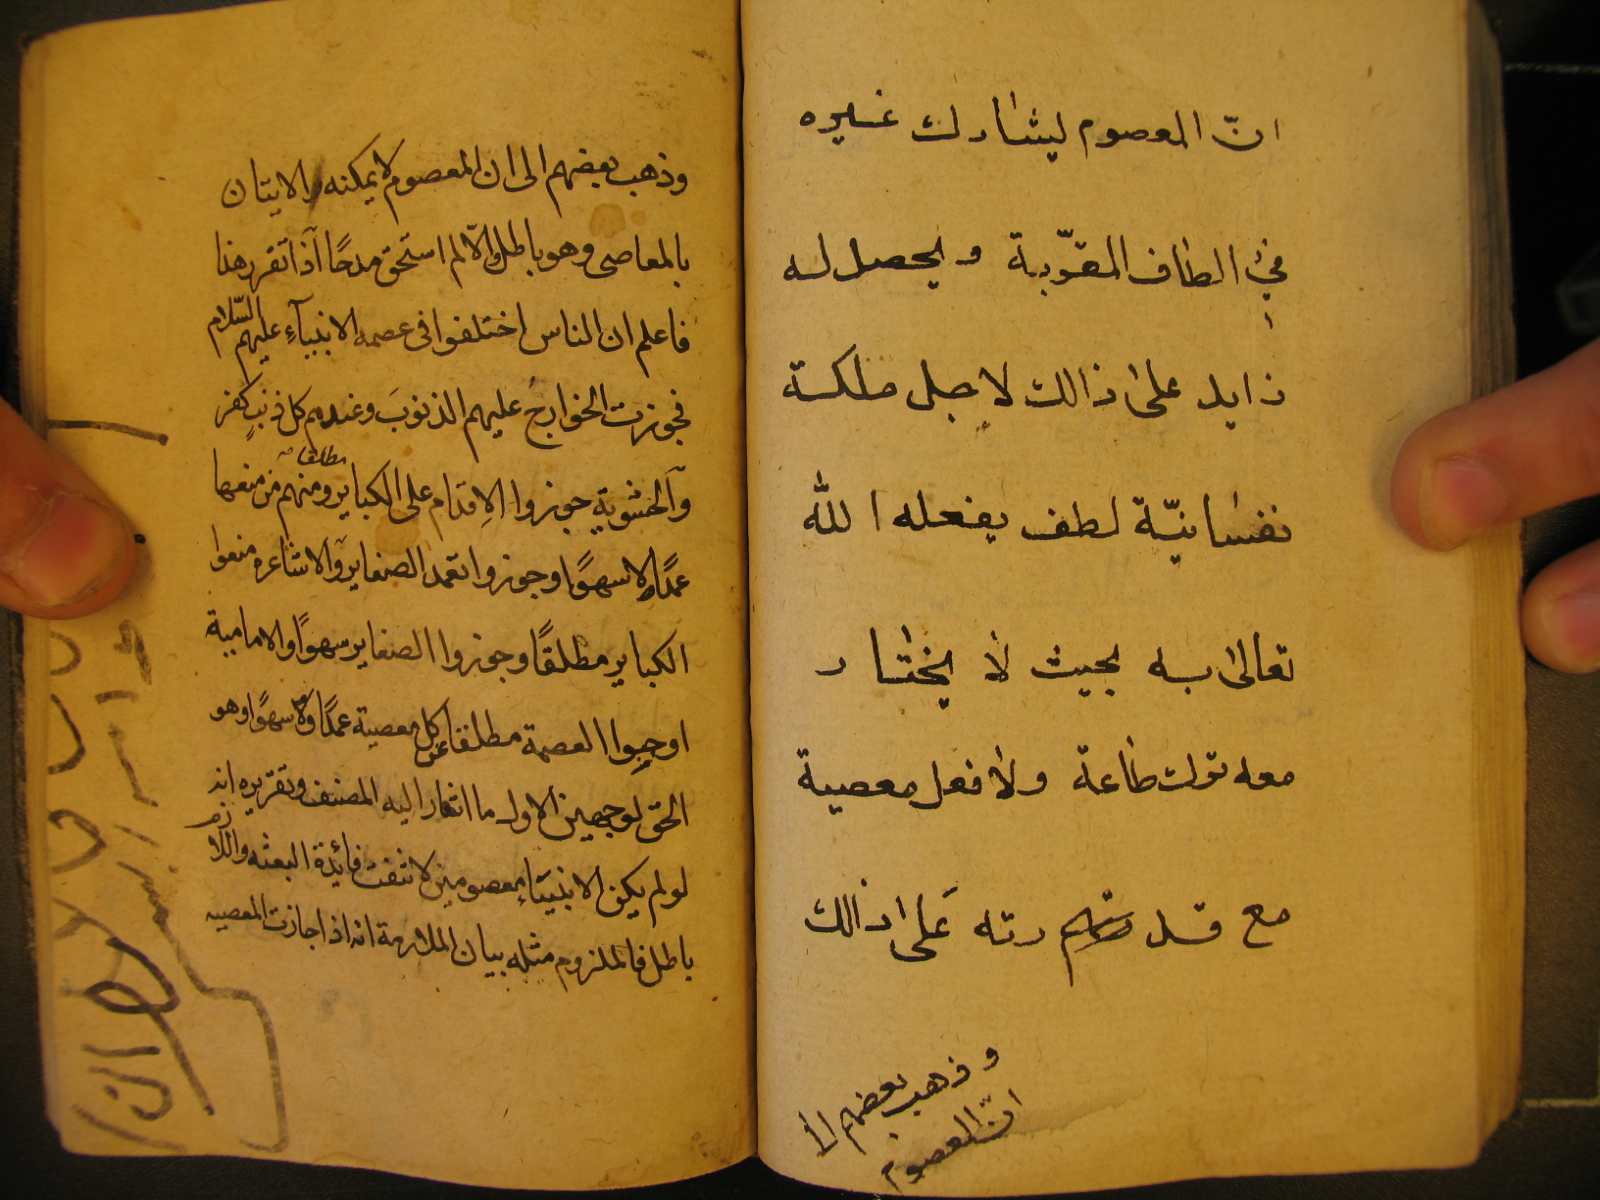 انّ المعصوم ليشارك غيره
في الطاف المقرّبة ويحصل له
زايد على ذالك لاجل ملكة
نفسانيّة لطف يفعله الله
تعالى به بحيث لا يختار
معه ترك طاعة ولا فعل معصية
مع قدرته على ذالك
وذهب بعضهم الى
انّ المعصوم
وذهب بعضهم الى ان المعصوم لا يمكنه الاتيان
بالمعاصى وهو باطل والّا لم استحق مدحًا اذا تقرر هذا
فاعلم ان الناس اختلفوا فى عصمه الانبيآء عليهم السّلام
فجوزت الخوارج عليهم الذنوبَ وعندهم كل ذنبٍ كفر
والحشوية جوزوا الاقدام على الكباير ومنهم من منعها
مطلقا
عمدًا لا سهوًا وجوزوا تعمد الصغاير والاشاعره منعوا
الكباير مطلقًا وجوزوا الصغاير سهوًا والامامية
اوجبوا العصمة مطلقا عن كل معصية عمدًا وسهوًا وهو
الحق لوجهين الاول ما اشار اليه المصنف وتقريره انه
لو لم يكن الانبيآء معصومين لانتفت فائدة البعثه واللازم
باطل فالملزوم مثله بيان الملازمة انه اذا جازت المعصيه